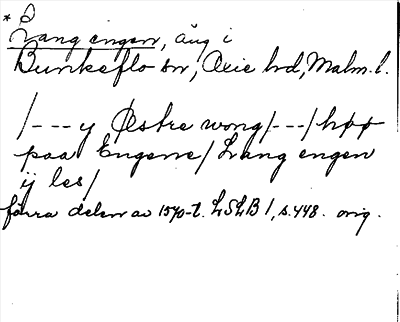 * Lang engen, äng i
Bunkeflo sn, Oxie hd, Malm. l.
/--- y Østre wong/---/ høø
paa Engene/ Lang engen
ij les/
förra delen av 1570-t. LSLB 1, s. 448. orig.